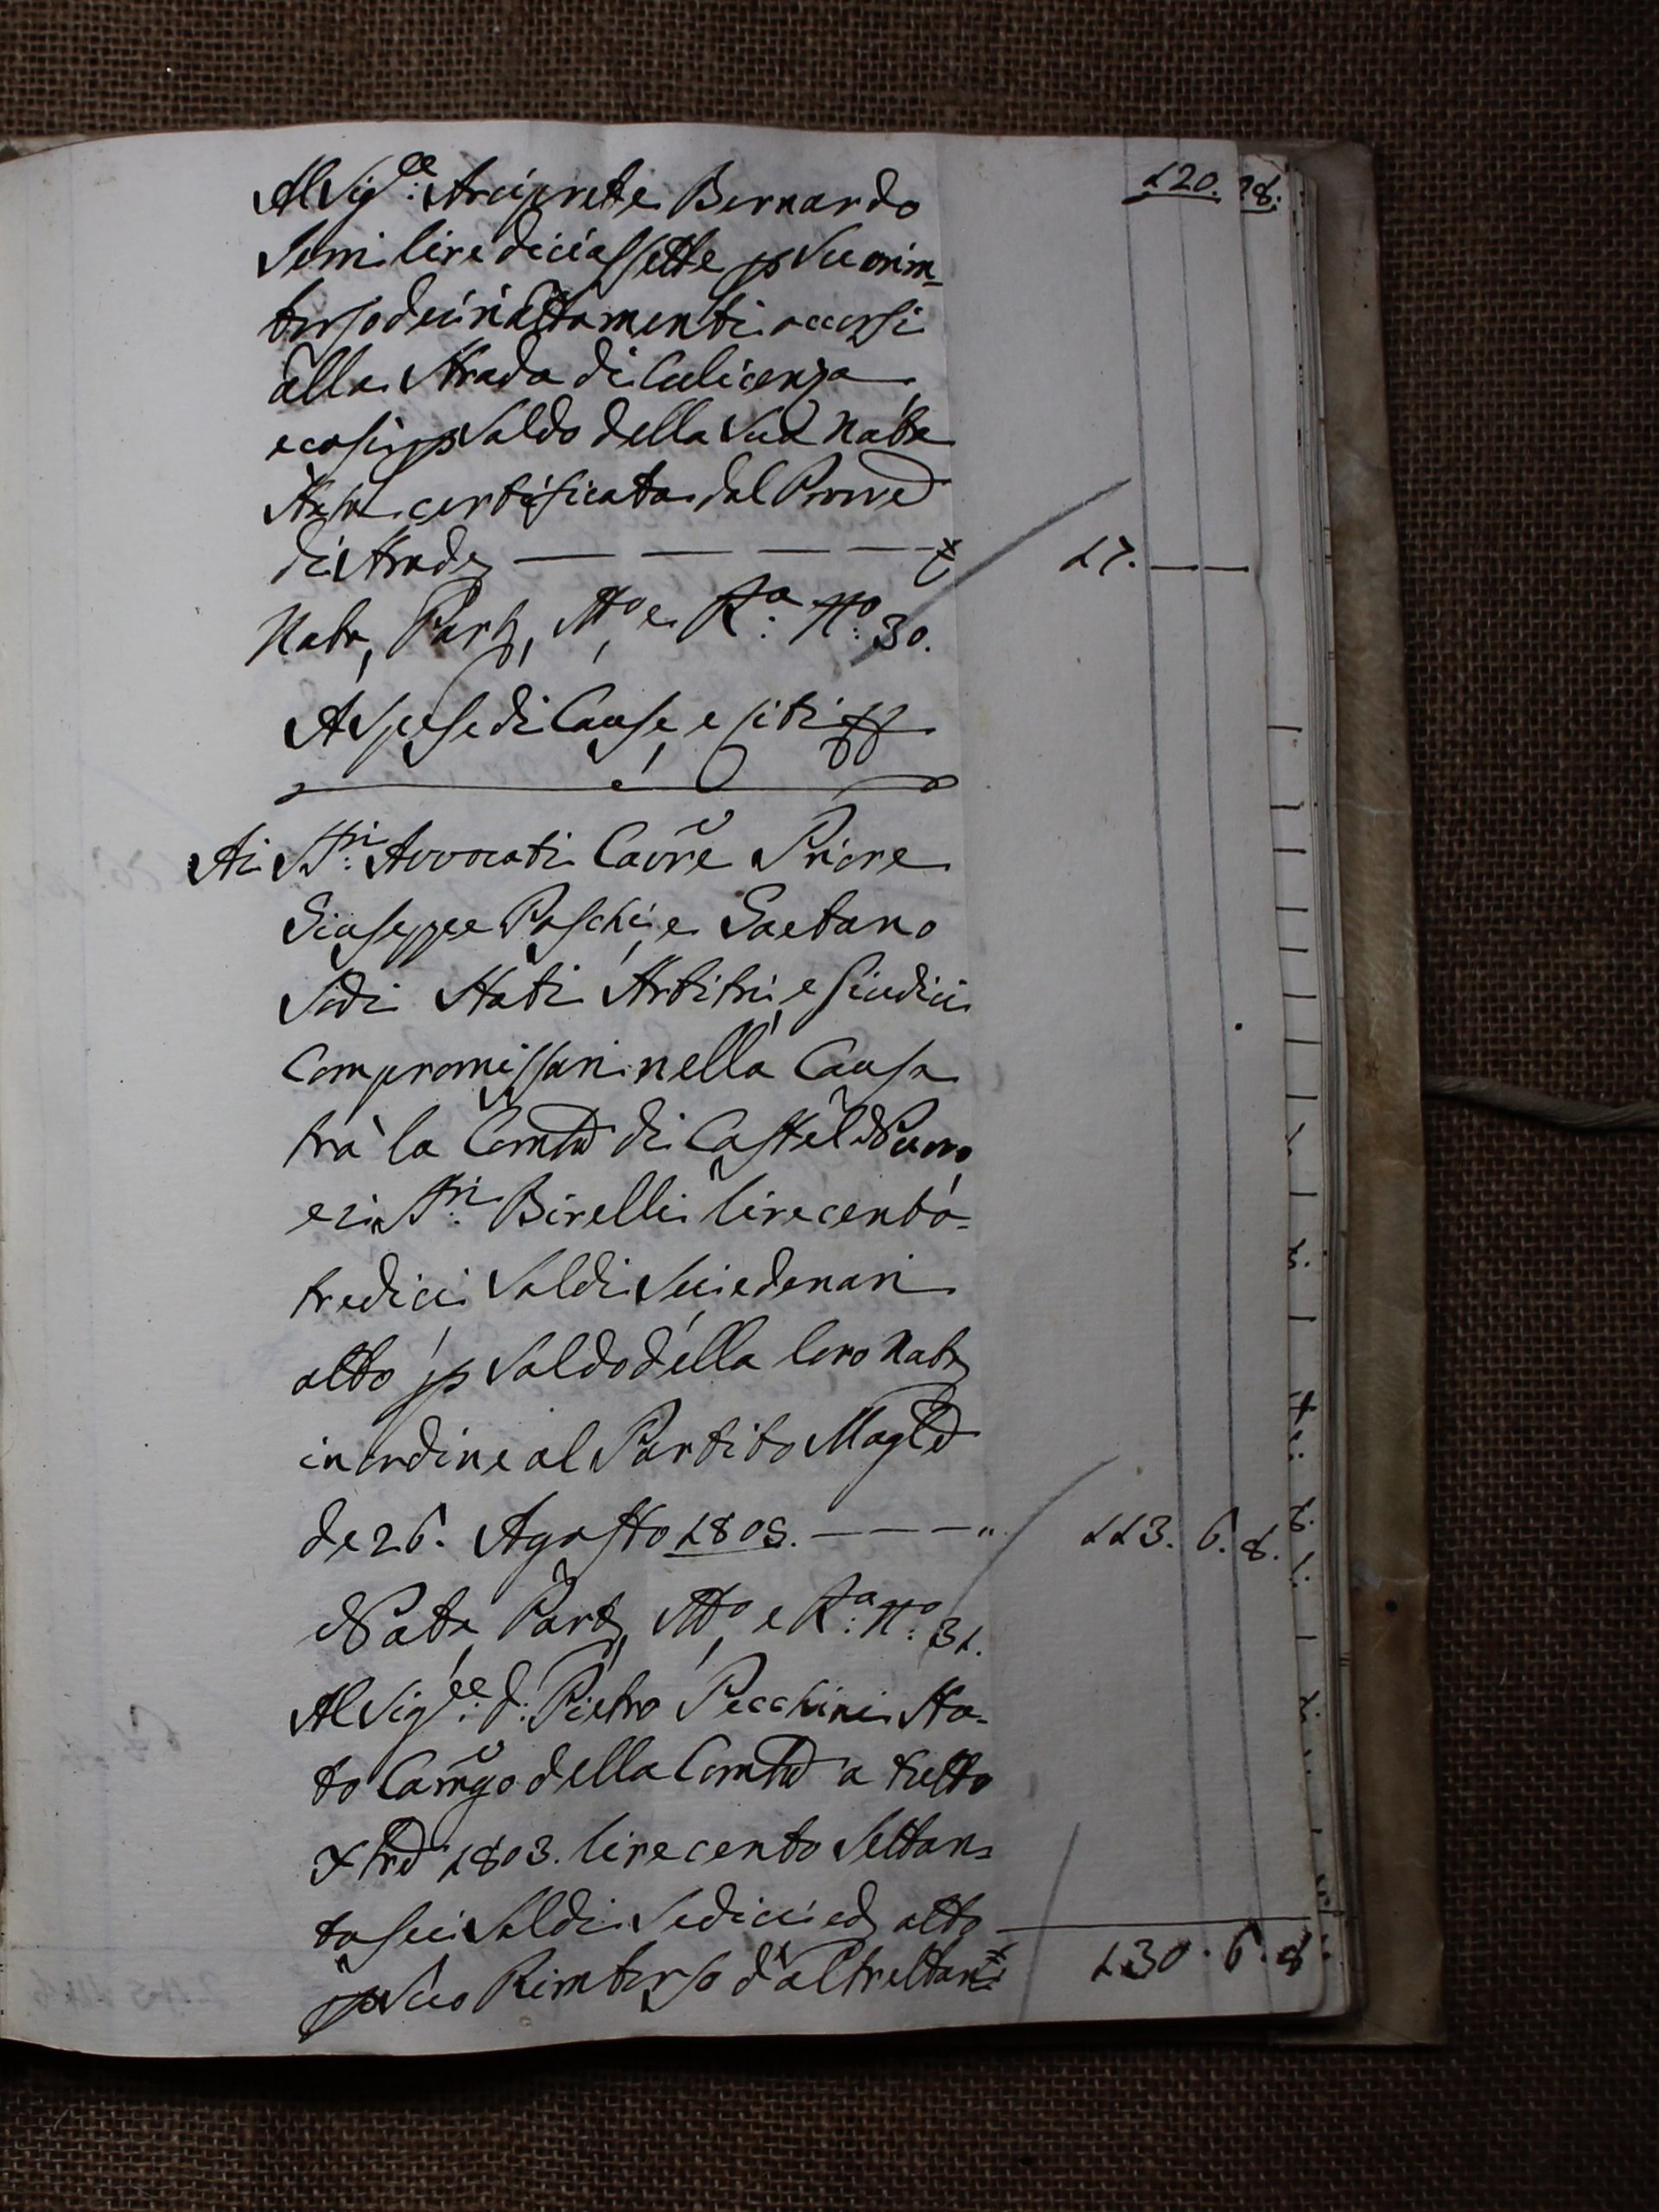 Al Sig.re Arciprete Bernardo 120. 18.
Semi lire diciassette p suo rim-
borso dei riattamenti occorsi
alla Strada di Culicenza
e così p Saldo della Sua Nota
certificata dal Provved
di Strade — — — — 17. — —
Nota, Part, Sto e Ra: No: 30.
A Spese di Cause, e Liti
Ai SSri: Avvocati Cavre Priore
Giuseppe Paschi, e Gaetano
Sodi Stati Arbitri, e Giudici
Compromissari nella Causa
trà la Comtà di Castel Nuovo
e i SSri: Birelli lire cento-
tredici Soldi Sei, e denari
otto p Saldo della loro Nota
in ordine al Partito Magle
de 26. Agosto 1803. — — — " 113. 6. 8.
Nota, Part, Sto, e Ra: No: 31.
Al Sig.re: D: Pietro Pecchini Sta-
to Camgo della Comtà a tutto
Xbre 1803. lire cento Settan-
tasei Soldi Sedici e d otto
p Suo Rimborso d'altrettante 130. 6. 8